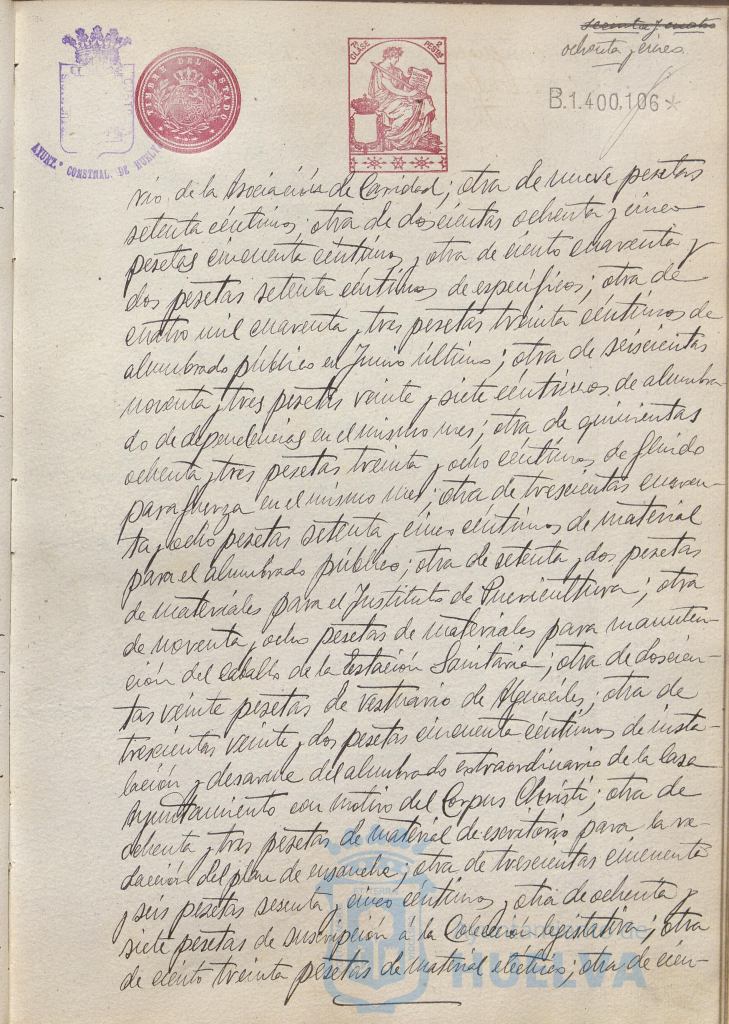 sesenta y cuatro
ochenta y cinco
7ª CLASE 2 PESETAS
TIMBRE DEL ESTADO
B.1.400,106*
AYUNT.º CONSTNAL. DE HUELVA
rio de la Asociación de Caridad; otra de nueve pesetas
setenta céntimos; otra de doscientas ochenta y cinco
pesetas cincuenta céntimos; otra de ciento cuarenta y
dos pesetas setenta céntimos de específicos; otra de
cuatro mil cuarenta y tres pesetas treinta céntimos de
alumbrado público en Junio último; otra de seiscientas
noventa y tres pesetas veinte y siete céntimos de alumbra-
do de dependencias en el mismo mes; otra de quinientas
ochenta y tres pesetas treinta y ocho céntimos de fluido
para fuerza en el mismo mes; otra de trescientas cuaren-
ta y ocho pesetas setenta y cinco céntimos de material
para el alumbrado público; otra de setenta y dos pesetas
de materiales para el Instituto de Puericultura; otra
de noventa y ocho pesetas de materiales para manuten-
ción del caballo de la Estación Sanitaria; otra de doscien-
tas veinte pesetas de vestuario de Alguaciles; otra de
trescientas veinte y dos pesetas cincuenta céntimos de insta-
lación y desarme del alumbrado extraordinario de la Casa
Ayuntamiento con motivo del Corpus Christi; otra de
ochenta y tres pesetas de material de escritorio para la re-
dacción del plan de ensanche; otra de trescientas cincuenta
y seis pesetas sesenta y cinco céntimos; otra de ochenta y
siete pesetas de suscripción á la Colección legislativa; otra
de ciento treinta pesetas de material eléctrico; otra de cien-
HUELVA